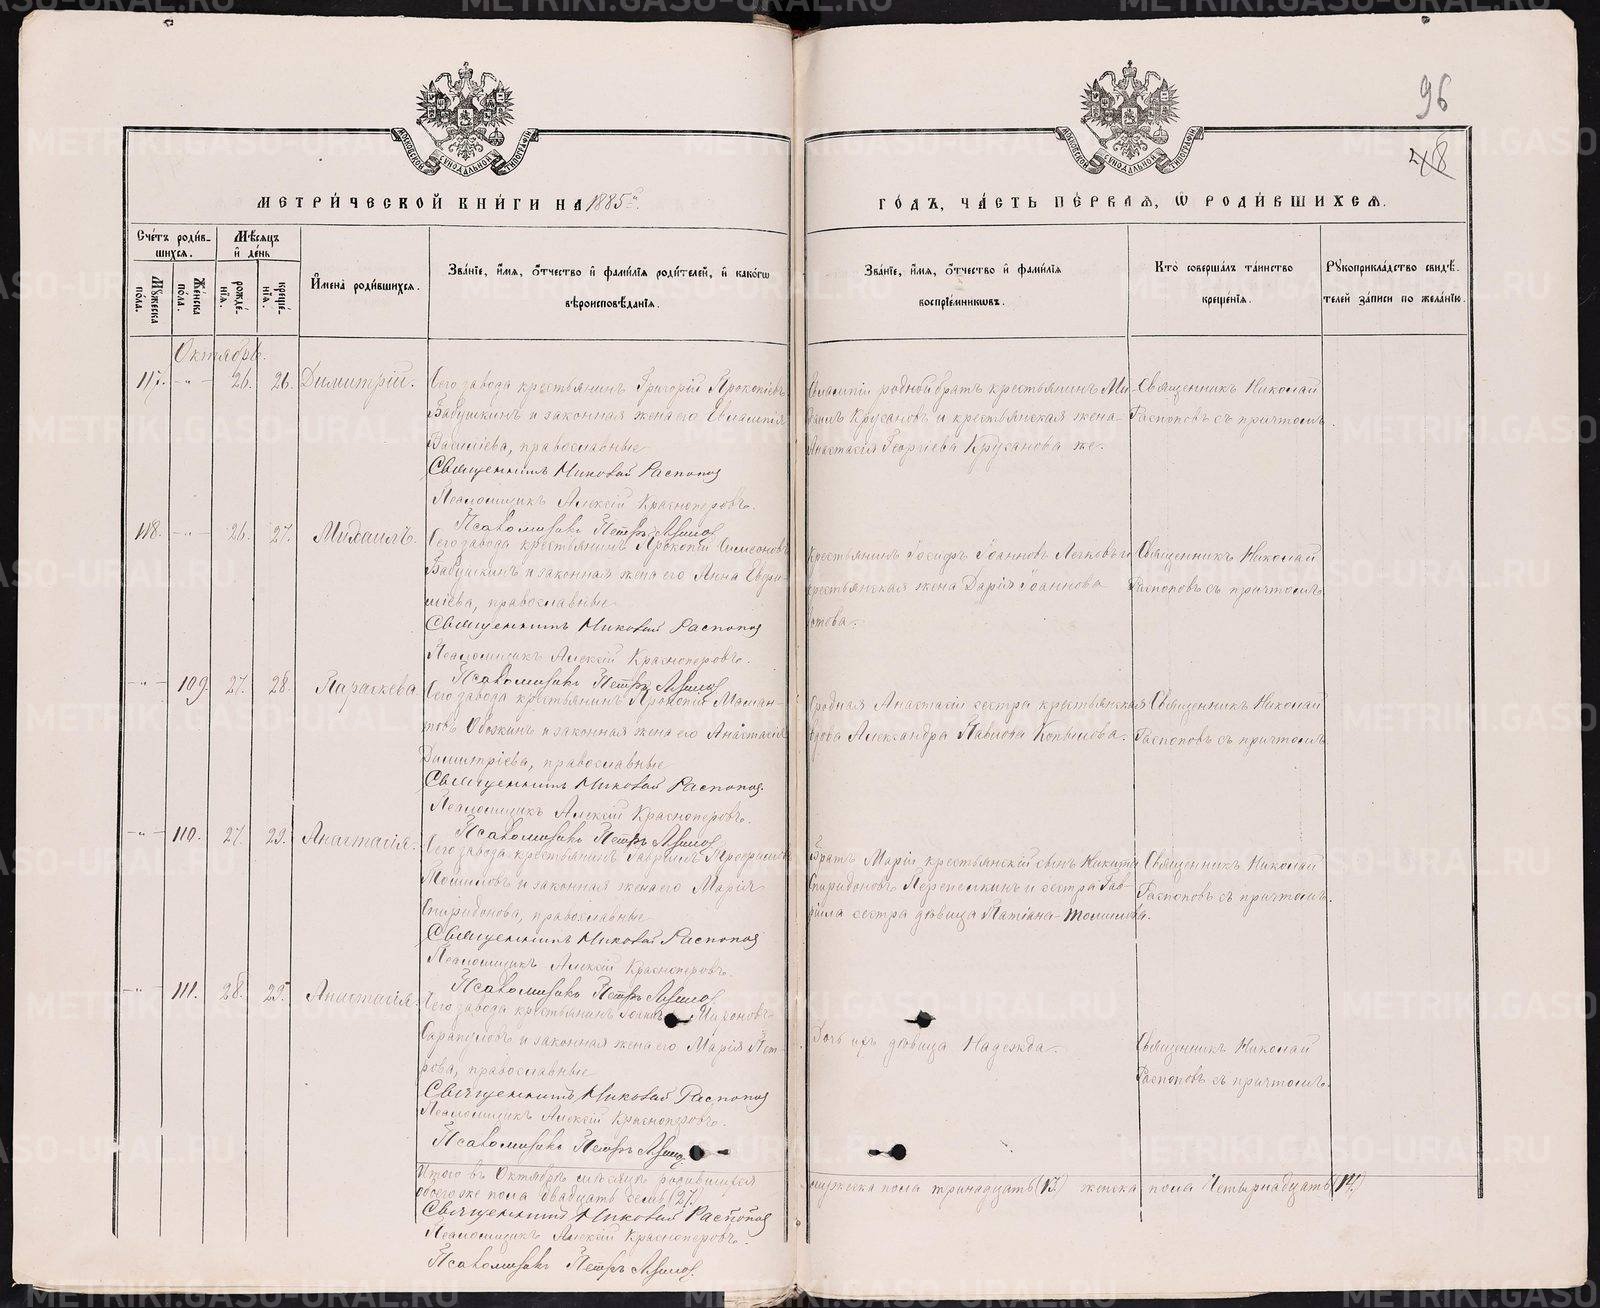 96
48
МЕТРИ́ЧЕСКОЙ КНИ́ГИ НА 1885й
ГО́ДЪ, ЧА́СТЬ ПЕ́РВАЯ, Ѡ РОДИ́ВШИХСЯ.
Сче́тъ роди́в-
шихся.
Мѣ́сяцъ
и̂ де́нь
Му́жеска
по́ла.
Же́нска
по́ла.
рожде́-
нїя.
креще́-
нїя.
И҆мена̀ роди́вшихся.
Зва́нїе, и҆́мя, ѻ҆́тчество и҆ фами́лїя роди́телей, и҆ како́гѡ
вѣроисповѣ́данїя.
Зва́нїе, и҆́мя, ѻ҆́тчество и҆ фами́лїя
воспрїе́мникѡвъ.
Кто̀ соверша́лъ та́инство
креще́нїя.
Рꙋкоприкла́дство свидѣ́-
телей за́писи по жела́нїю.
Октябрь.
117. -„- 26. 26. Димитрій.
Сего завода крестьянинъ Григорій Прокопіевъ
Бабушкинъ и законная жена его Евлампія
Василіева, православные
Священникъ Николай Распопов
Псаломщикъ Алексій Красноперовъ.
Псаломщикъ Петръ
Евлампіи родной братъ крестьянинъ Ми-
хаилъ Крусановъ и крестьянская жена
Анастасія Георгіева Крусанова же.
Священникъ Николай
Распоповъ съ причтомъ.
118. -„- 26. 27. Михаилъ.
Сего завода крестьянинъ Прокопій Симеоновъ
Бабушкинъ и законная жена его Анна Евфи-
міева, православные
Священникъ Николай Распопов
Псаломщикъ Алексій Красноперовъ.
Псаломщикъ Петръ
Крестьянинъ Іосифъ Іоанновъ Легковъ и
крестьянская жена Дарія Іоаннова
Священникъ Николай
Распоповъ съ причтомъ.
-„- 109. 27. 28. Параскева.
Сего завода крестьянинъ Прокопій Маман-
товъ Обожинъ и законная жена его Анастасія
Димитріева, православные
Священникъ Николай Распопов.
Псаломщикъ Алексій Красноперовъ.
Псаломщикъ Петръ
Сродная Анастасіи сестра крестьянская
вдова Александра Павлова Копылова.
Священникъ Николай
Распоповъ съ причтомъ
-„- 110. 27. 29. Анастасія.
Сего завода крестьянинъ Гавріилъ
Томиловъ и законная жена его Марія
Спиридонова, православные
Священникъ Николай Распопов
Псаломщикъ Алексій Красноперовъ.
Псаломщикъ Петръ
Братъ Маріи крестьянскій сынъ Никита
Спиридоновъ Перепелкинъ и сестра Гав-
ріила сестра дѣвица Татіана Томилова.
Священникъ Николай
Распоповъ съ причтомъ.
-„- 111. 28. 29. Анастасія.
Сего завода крестьянинъ Тихоновъ
Сарапуловъ и законная жена его Марія Пет-
рова, православные
Священникъ Николай Распопов
Псаломщикъ Алексій Красноперовъ.
Псаломщикъ Петръ
Дочь ихъ дѣвица Надежда.
Священникъ Николай
Распоповъ съ причтомъ.
Итого въ Октябрѣ мѣсяцѣ родившихся
обоего же пола двадцать семь (27.)
мужеска пола тринадцать (13.) женска пола Четырнадцать (14.)
Священникъ Николай Распопов
Псаломщикъ Алексій Красноперовъ.
Псаломщикъ Петръ